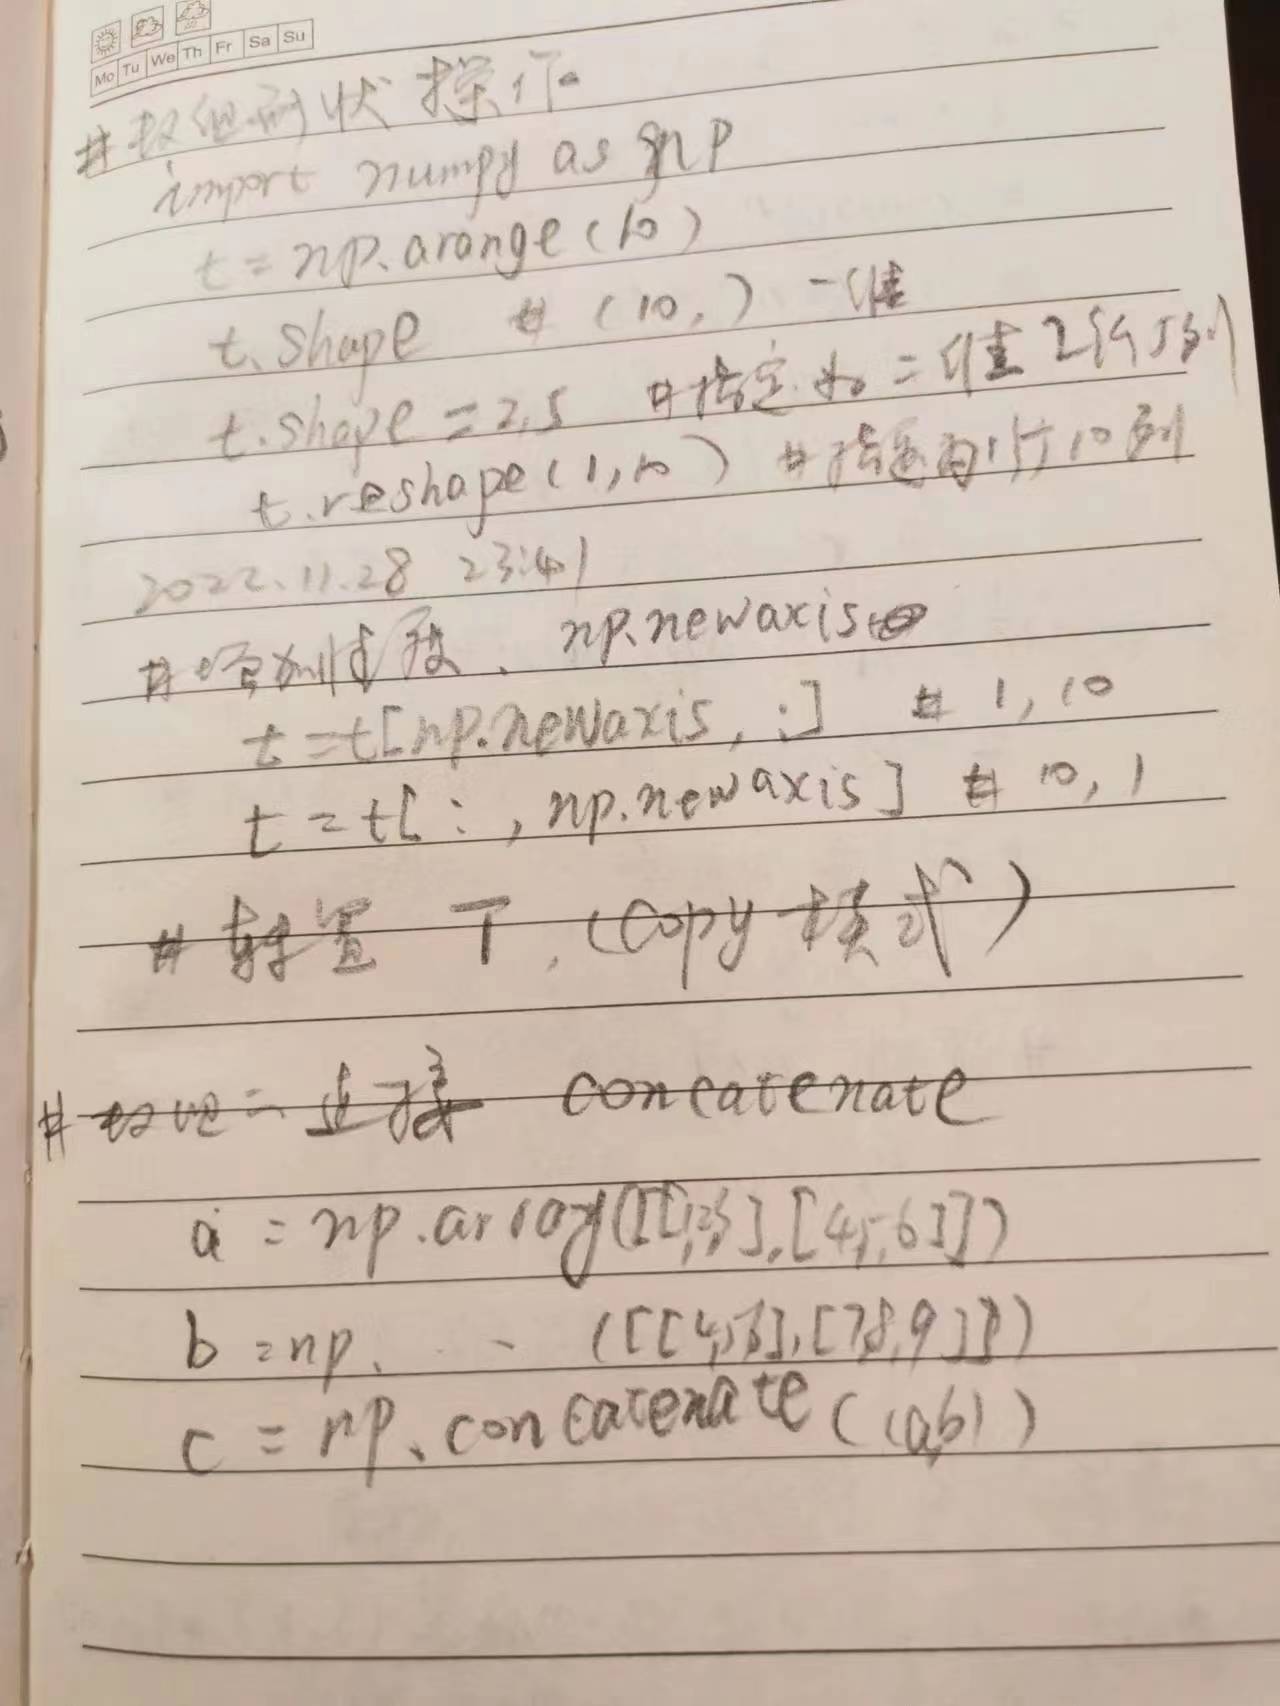 Mo Tu We Th Fr Sa Su
# 数组形状 操作
import numpy as np
t = np.arange(10)
t.shape # (10,) 一维
t.shape = 2,5 # 指定为二维 2行5列
t.reshape(1,10) # 指定为1行10列
2022.11.28 23:41
# 增加维度、np.newaxis
t=t[np.newaxis, :] # 1, 10
t = t[:, np.newaxis] # 10, 1
# 转置 T, (copy 模式)
# 数组 连接 concatenate
a = np.array([[1,2,3],[4,5,6]])
b = np. ([[4,5,6],[7,8,9]])
c = np.concatenate((a,b))